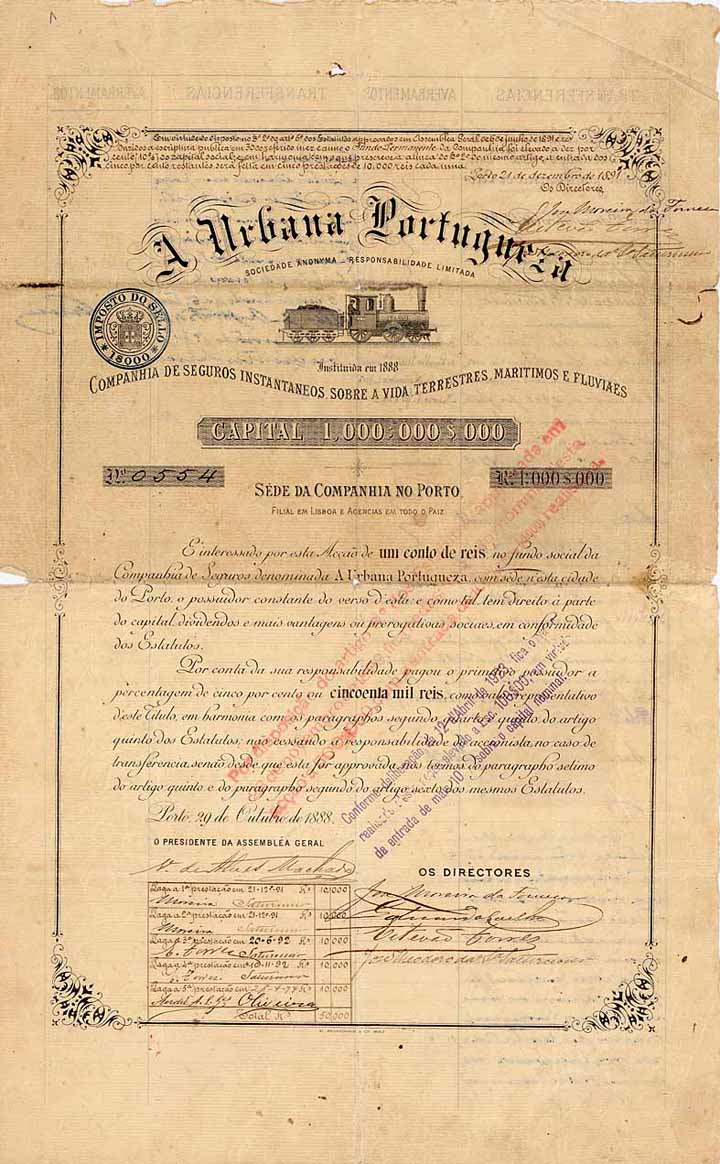 TRANSFERENCIAS
AVERBAMENTOS
TRANSFERENCIAS
AVERBAMENTOS
Em virtude do disposto no § 2º do artº 6º dos Estatutos approvados em Assembléa Geral de 6 de junho de 1891 e re-
duzidos a escriptura publica em 30 do referido mez e anno, o Fundo Permanente da Companhia foi elevado a dez por
cento (10%) do capital social, e em harmonia com o que prescreve a alinea do § 2º do mesmo artigo, a entrada dos
cinco por cento restantes será feita em cinco prestações de 10.000 reis cada uma.
Porto 21 de dezembro de 1891
Os Directores,
José Moreira da Fonseca
Estevão Torres
A Urbana Portugueza
SOCIEDADE ANONYMA _ RESPONSABILIDADE LIMITADA
IMPOSTO DO SELLO
1$000
Instituida em 1888
COMPANHIA DE SEGUROS INSTANTANEOS, SOBRE A VIDA, TERRESTRES, MARITIMOS E FLUVIAES
CAPITAL 1,000:000$000
Nº 0554
Rs 1:000$000
SÉDE DA COMPANHIA NO PORTO
FILIAL EM LISBOA E AGENCIAS EM TODO O PAIZ
É interessado por esta Acção de um conto de reis, no fundo social da
Companhia de Seguros denominada A Urbana Portugueza, com séde n'esta cidade
do Porto, o possuidor constante do verso d'esta e como tal, tem direito á parte
do capital, dividendos e mais vantagens ou prerogativas sociaes, em conformidade
dos Estatutos.
Por conta da sua responsabilidade pagou o primeiro possuidor a
percentagem de cinco por cento ou cincoenta mil reis, como valor representativo
d'este Titulo, em harmonia com os paragraphos segundo, quarto e quinto do artigo
quinto dos Estatutos; não cessando a responsabilidade do accionista, no caso de
transferencia, senão desde que esta fôr approvada, nos termos do paragrapho setimo
do artigo quinto e do paragrapho segundo do artigo sexto dos mesmos Estatutos.
Porto, 29 de Outubro de 1888.
Conforme deliberação de 12 d'Abril de 1923, fica o
de entrada de mais 10% sobre o capital nominal
O PRESIDENTE DA ASSEMBLÉA GERAL
V. de Alves Machado
OS DIRECTORES
José Moreira da Fonseca
Eduardo Coelho
Estevão Torres
Paga a 1ª prestação em 21-12º-91 Rs 10,000
Moreira Saturnino
Paga a 2ª prestação em 21-12º-91 10,000
Moreira Saturnino
Paga a 3ª prestação em 20-6-92 Rs 10.000
E. Torres Saturnino
Paga a 4ª prestação em 10-11-92 Rs 10.000
E. Torres Saturnino
Paga a 5ª prestação em Rs 10.000
Oliveira
Total Rs 50,000